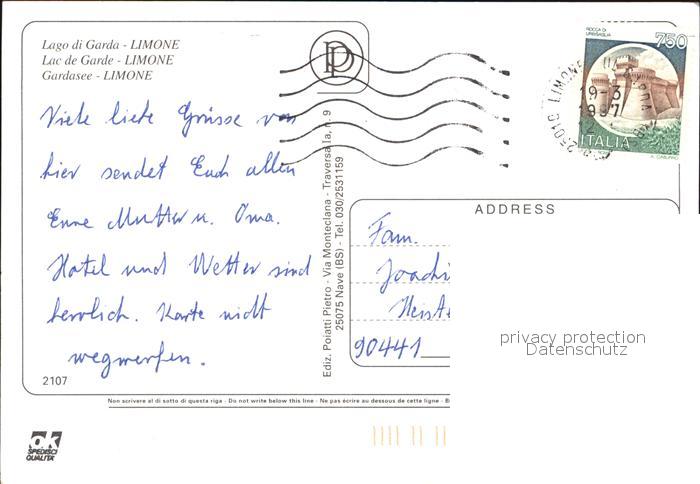 Lago di Garda - LIMONE
Lac de Garde - LIMONE
Gardasee - LIMONE
Viele liebe Grüsse von
hier sendet Euch allen
Eure Mutter u. Oma.
Hotel und Wetter sind
herrlich. Karte nicht
wegwerfen.
2107
ok
SPEDISCI
QUALITA'
PP
Ediz. Poiatti Pietro - Via Monteclana - Traversa Ia, n. 9
25075 Nave (BS) - Tel. 030/2531159
ROCCA DI
URBISAGLIA
750
ITALIA
25010 LIMONE
19-3
1997
ADDRESS
Fam.
Joachi
Heist
90441
privacy protection
Datenschutz
Non scrivere al di sotto di questa riga - Do not write below this line - Ne pas écrire au dessous de cette ligne - B